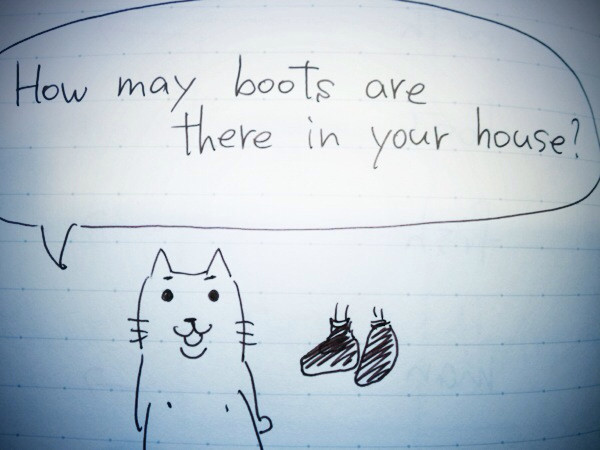 How may boots are
there in your house?